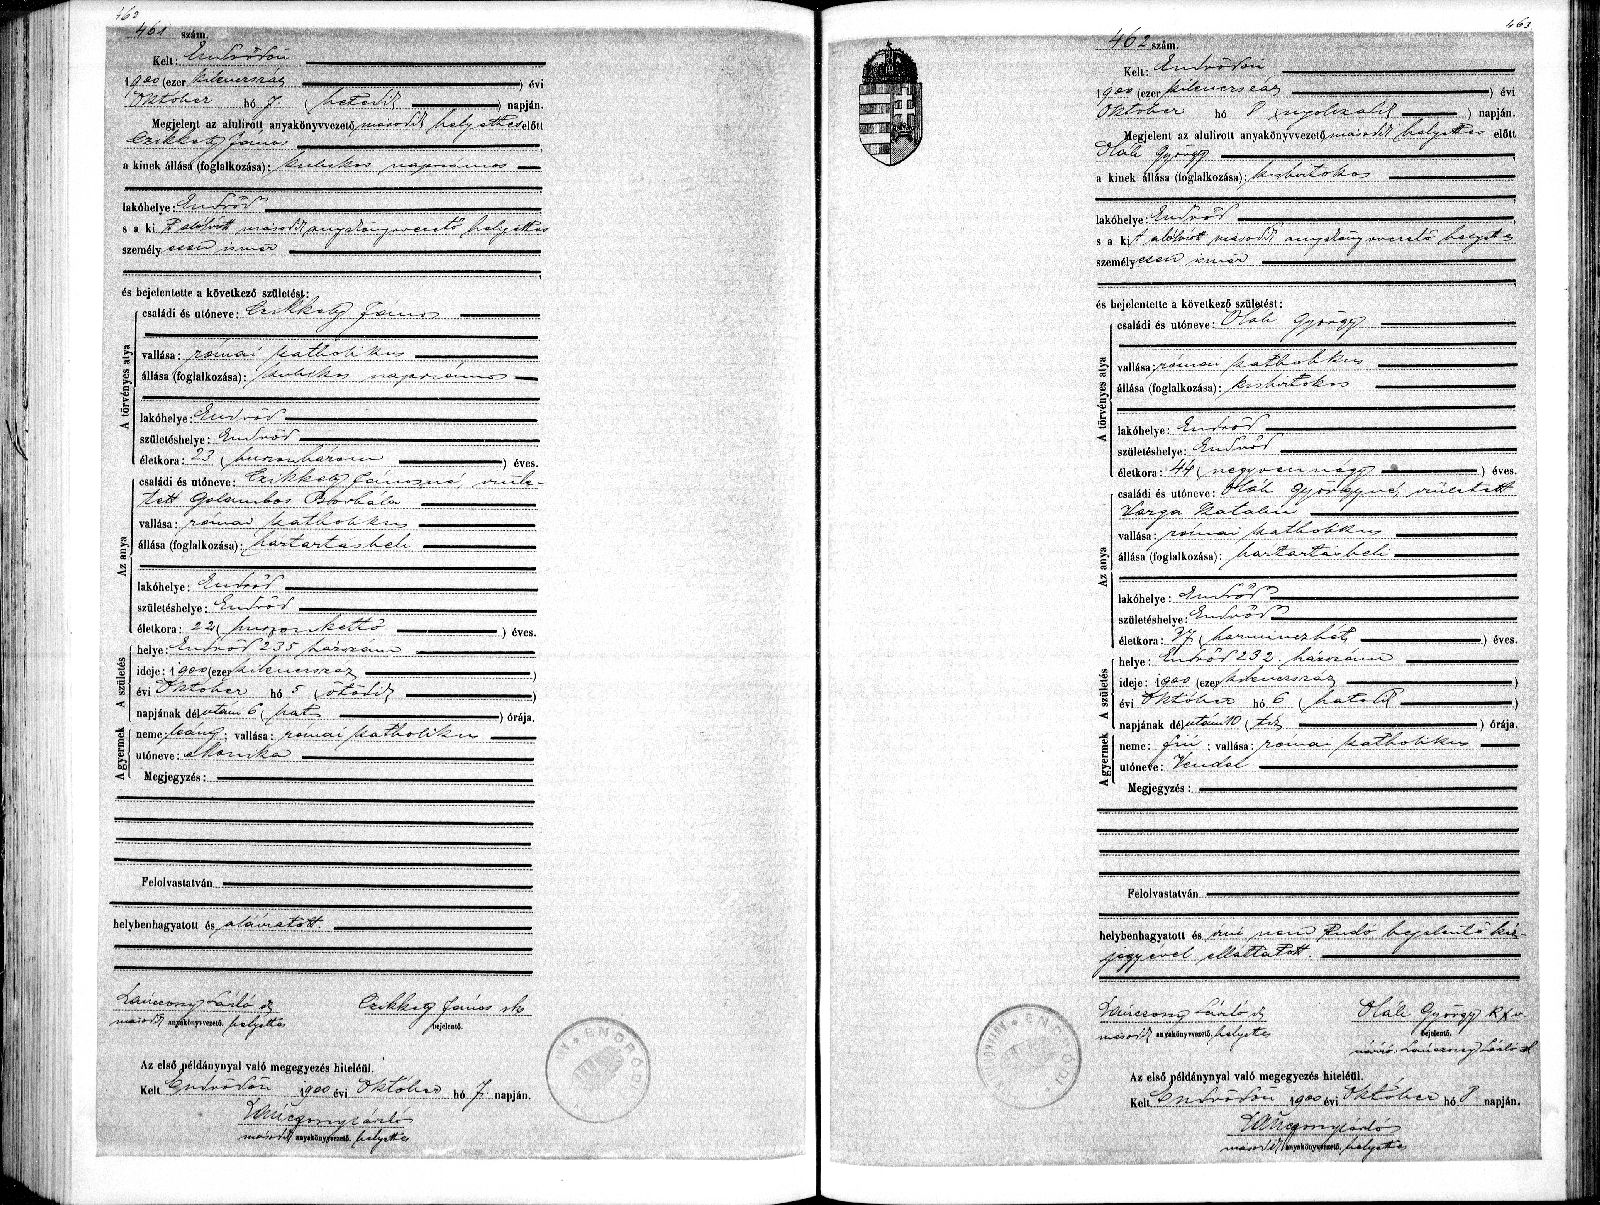 462
461 szám.
Kelt: Endrődön
1900 (ezer kilencszáz) évi
Október hó 7 (hetedik) napján.
Megjelent az alulirott anyakönyvvezető második helyettes előtt
Czikkely János
a kinek állása (foglalkozása): kubikos napszámos
lakóhelye: Endrőd
s a kit alólirott második anyakönyvvezető helyettes
személyesen ismer
és bejelentette a következő születést:
A törvényes atya
családi és utóneve: Czikkely János
vallása: római katholikus
állása (foglalkozása): kubikos napszámos
lakóhelye: Endrőd
születéshelye: Endrőd
életkora: 23 (huszonhárom) éves.
Az anya
családi és utóneve: Czikkely Jánosné, szüle-
tett Golombos Borbála
vallása: római katholikus
állása (foglalkozása): háztartásbeli
lakóhelye: Endrőd
születéshelye: Endrőd
életkora: 22 (huszonkettő) éves.
A születés
helye: Endrőd 235 házszám
ideje: 1900 (ezer kilencszáz)
évi Október hó 5 (ötödik)
napjának délutáni 6 (hat) órája.
A gyermek
neme: leány; vallása: római katholikus
utóneve: Monika
Megjegyzés:
Felolvastatván
helybenhagyatott és aláíratott.
Lánczony László sk
Czikkely János sk
második anyakönyvvezető. helyettes
bejelentő.
Az első példánynyal való megegyezés hiteléül.
Kelt Endrődön 1900 évi Október hó 7 napján.
Lánczony László
második anyakönyvvezető. helyettes
ENDRŐDI
463
462 szám.
Kelt: Endrődön
1900 (ezer kilencszáz) évi
Október hó 8 (nyolczadik) napján.
Megjelent az alulirott anyakönyvvezető második helyettes előtt
Oláh György
a kinek állása (foglalkozása): kisbirtokos
lakóhelye: Endrőd
s a kit alólirott második anyakönyvvezető helyettes
személyesen ismer
és bejelentette a következő születést:
A törvényes atya
családi és utóneve: Oláh György
vallása: római katholikus
állása (foglalkozása): kisbirtokos
lakóhelye: Endrőd
születéshelye: Endrőd
életkora: 44 (negyvennégy) éves.
Az anya
családi és utóneve: Oláh Györgyné, született
Varga Katalin
vallása: római katholikus
állása (foglalkozása): háztartásbeli
lakóhelye: Endrőd
születéshelye: Endrőd
életkora: 37 (harminczhét) éves.
A születés
helye: Endrőd 232 házszám
ideje: 1900 (ezer kilencszáz)
évi Október hó 6 (hatodik)
napjának délutáni 10 (tíz) órája.
A gyermek
neme: fiú; vallása: római katholikus
utóneve: Vendel
Megjegyzés:
Felolvastatván
helybenhagyatott és írni nem tudó bejelentő kéz-
jegyével elláttatott.
Lánczony László sk
Oláh György k x v
második anyakönyvvezető. helyettes
bejelentő.
névíró: Lánczony László sk
Az első példánynyal való megegyezés hiteléül.
Kelt Endrődön 1900 évi Október hó 8 napján.
Lánczony László
második anyakönyvvezető. helyettes
ENDRŐDI